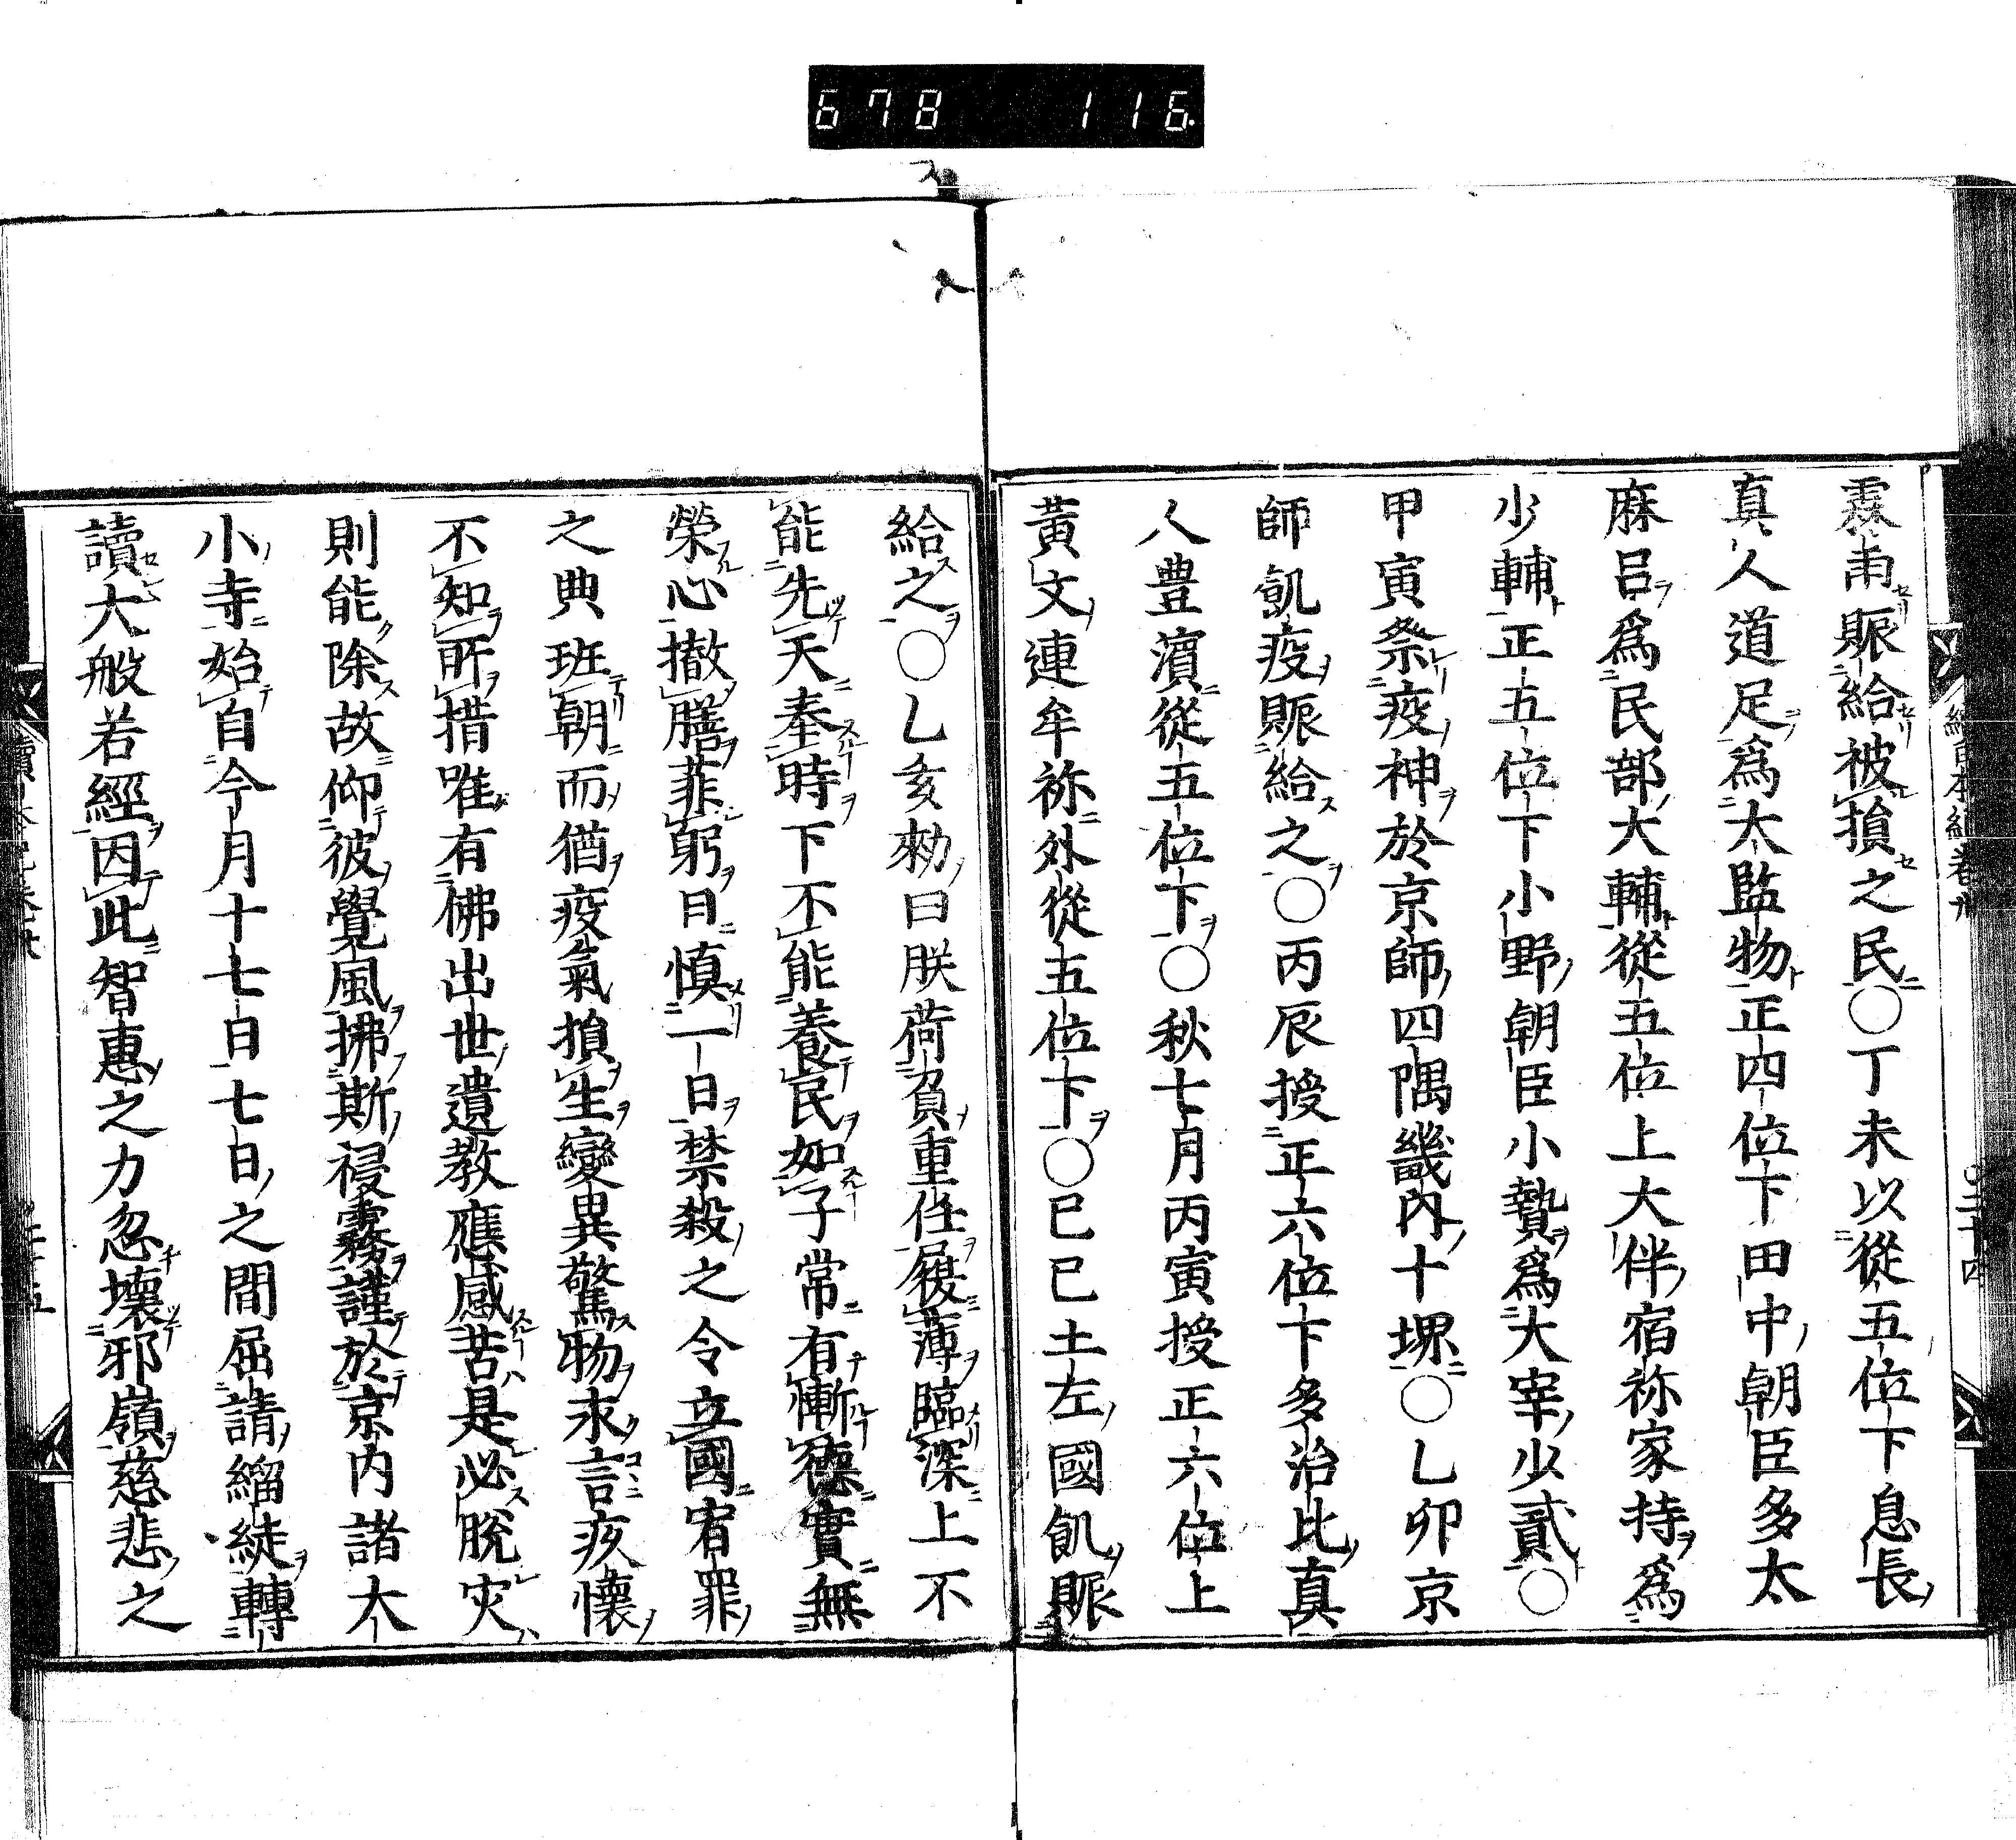 678 116
霖雨賑給被損之民○丁未以從五位下息長
真人道足爲大監物正四位下田中朝臣多太
麻呂爲民部大輔從五位上大伴宿祢家持爲
少輔正五位下小野朝臣小贄爲大宰少貳○
甲寅祭疫神於京師四隅畿內十堺○乙卯京
師飢疫賑給之○丙辰授正六位下多治比真
人豊濱從五位下○秋七月丙寅授正六位上
黃文連牟祢外從五位下○巳巳土左國飢賑
給之○乙亥勑曰朕荷負重任履薄臨深上不
能先天奉時下不能養民如子常有慚德實無
榮心撤膳菲躬日慎一日禁殺之令立國宥罪
之典班朝而猶疫氣損生變異驚物永言疚懷
不知所措唯有佛出世遺教應感苦是必脫灾
則能除故仰彼覺風拂斯祲霧謹於京內諸大
小寺始自今月十七日七日之間屈請緇徒轉
讀大般若經因此智惠之力忽壞邪嶺慈悲之